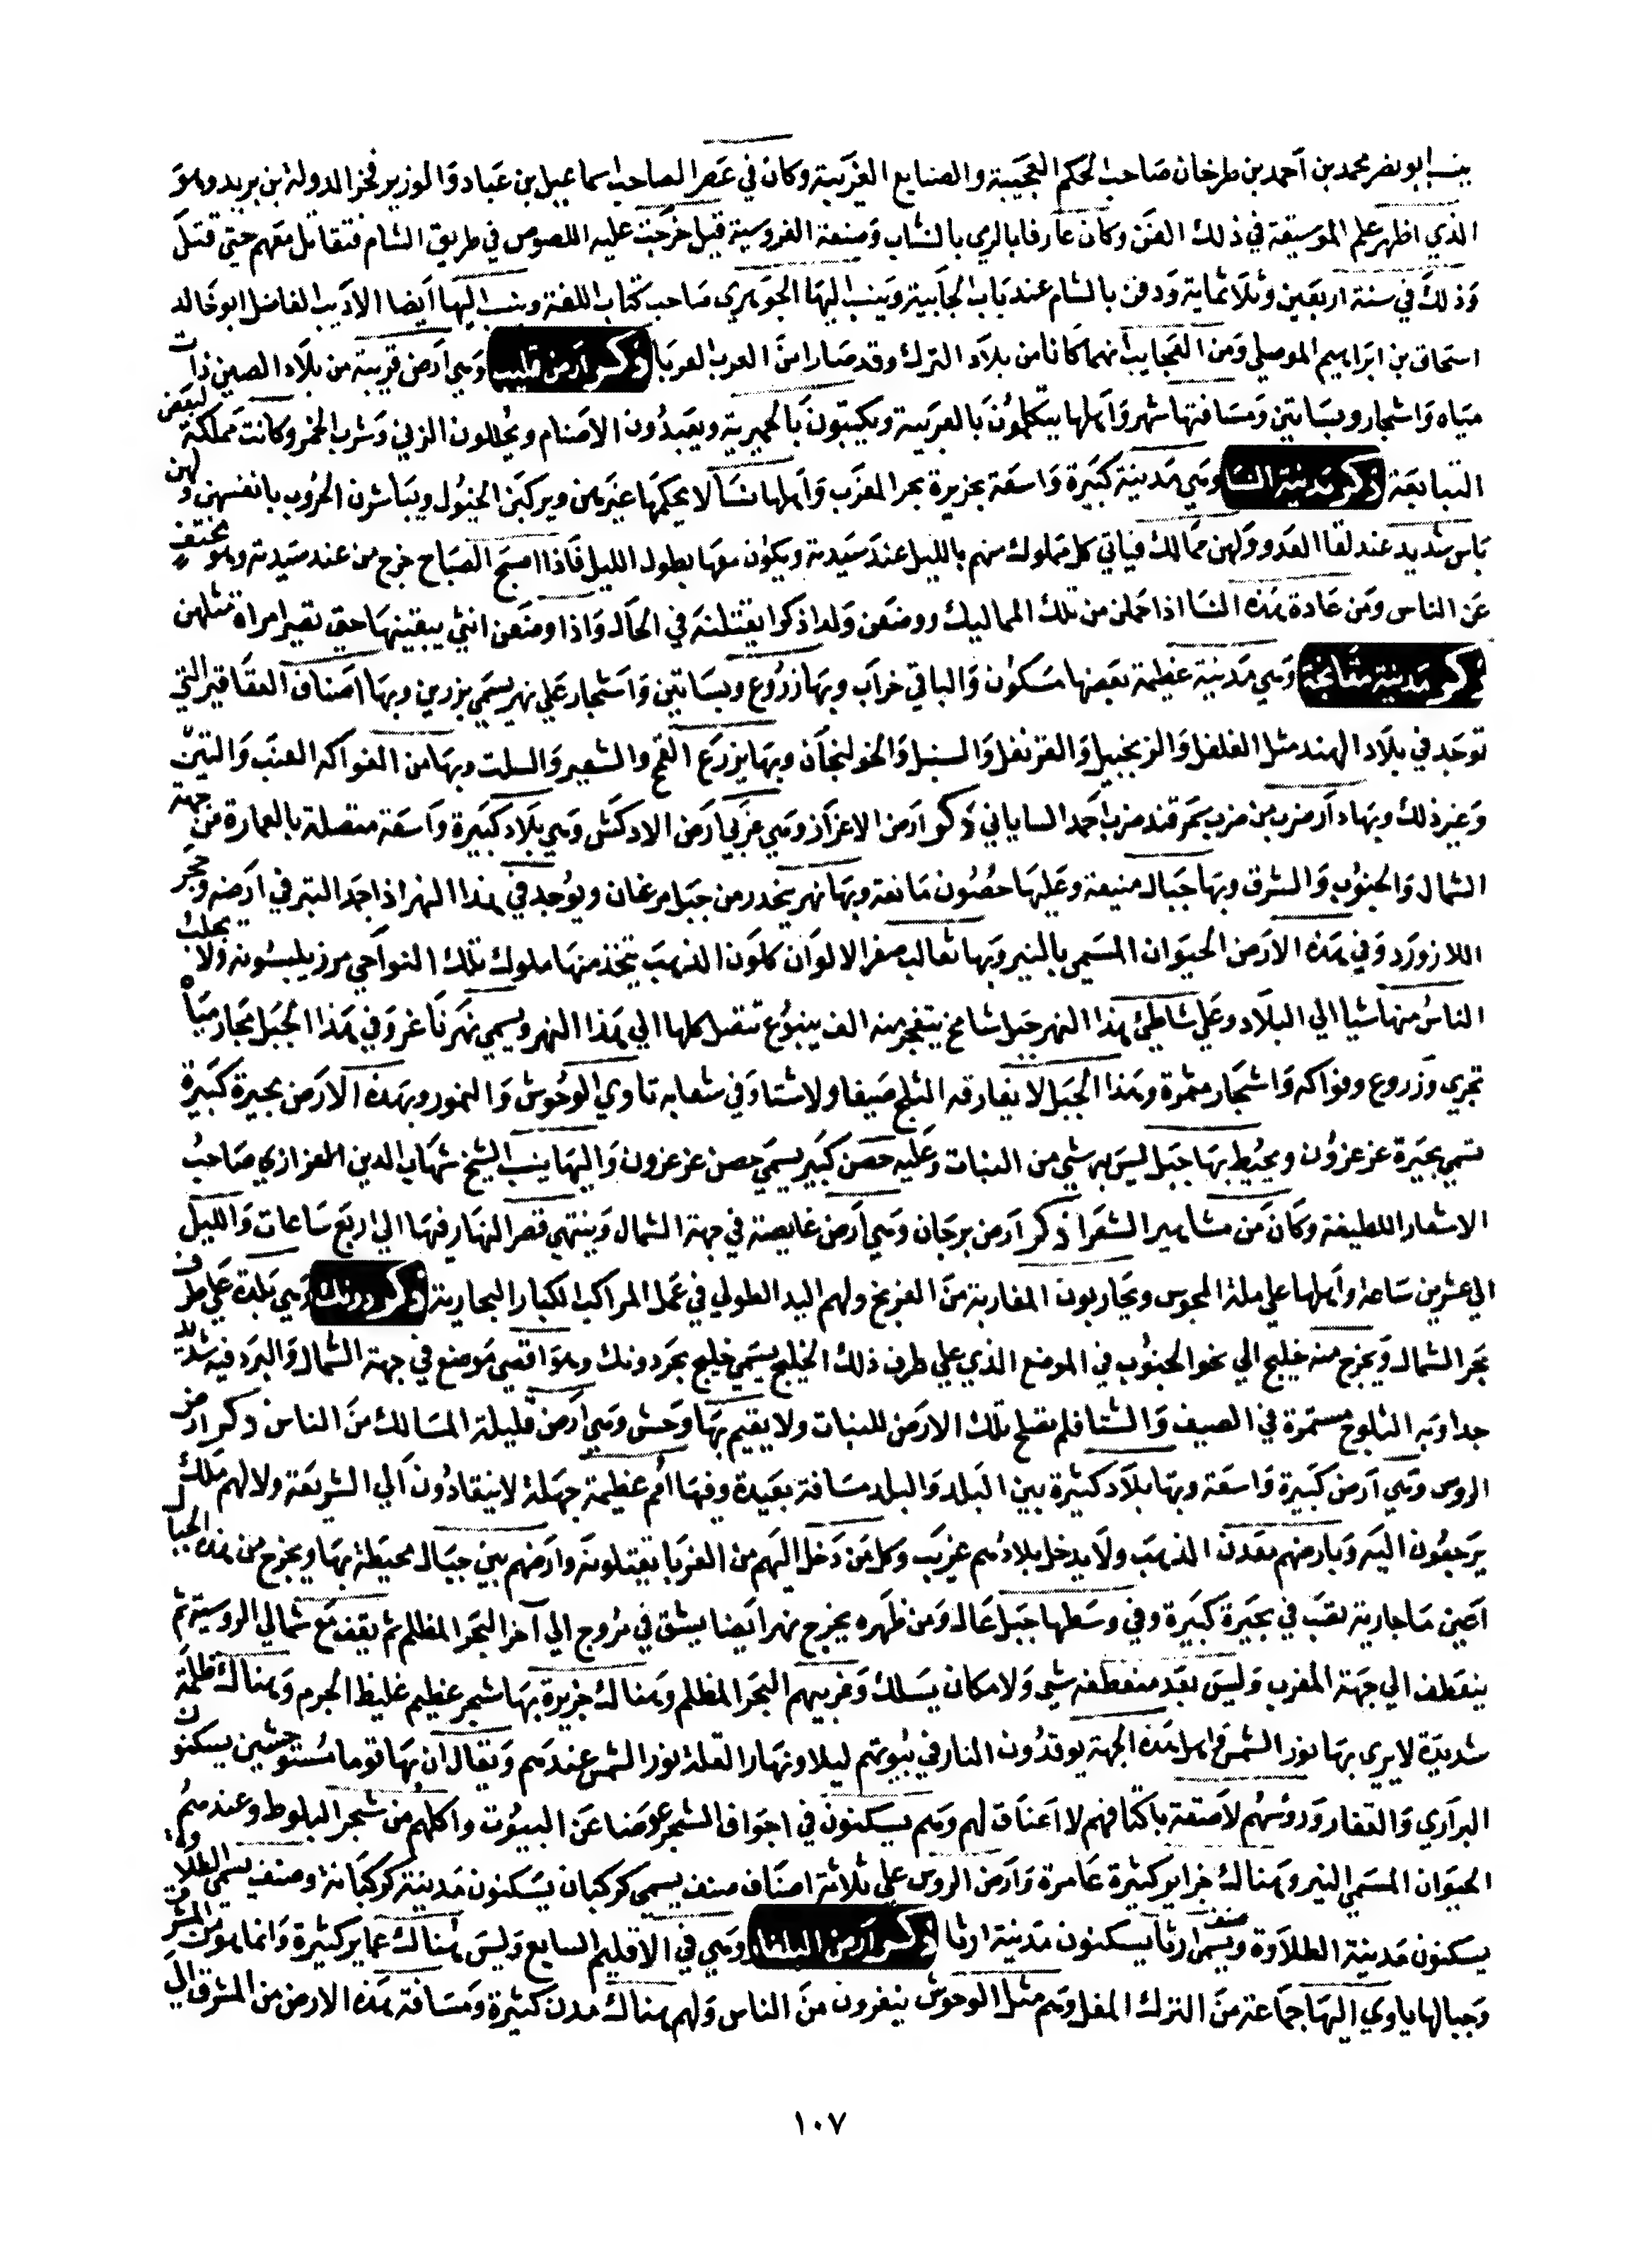 ينسب ابو نصر محمد بن أحمد بن طرخان صَاحب الحكم العجيبة والصنايع الغريبة وكان في عَصر الصاحب اسماعيل بن عَباد وَالوزير فخر الدولة بن بريد وهوَ
الذي اظهر علم الموسيقة في ذلك الفنَن وكان عَارفا بالري بالنشاب وَصنعة الفروسية قيل خرَجت عليه اللصوص في طريق الشام فتقاتل معَهم حتي قتلَ
وَذلكَ في سنة اربعَين وثلاَثماية وَدفن بالشام عند بَاب الجاَبية وَينسب اليهَا الجوَهري صَاحب كتَاب اللغة وينسب اليهَا اَيضا الاَديب الفاضل ابو خَالد
اسحَاق بن ابرَاهيم الموصلي وَمن العَجايب انهما كاَنا من بلاَد الترك وقد صَارا منَ العرب العربَا ذكر ارَض تلبت وَهي اَرض قريبة من بلاَد الصين ذات
ميَاه وَاشجار وبسَاتين وَمسَافتها شهر وَاهلها يتكلمُونَ بالعرَبية ويكتبّون بَالحميرية ويعَبدُون الاصَنام ويُحللون الزني وَشرب الخمر وكانت مَملكة لبعَض
التبابعَة ذكر مَدينة النسَا وهي مَدينة كبَيرة وَاسعَة بجزيرة بحر المغرَب وَاهلها نسَا لا يحكمهَا غيرَهن ويركبَن الخيُول ويبَاشرن الحرُوب بانفسهن وَلهن
بَاس شديد عند لقَا العدَو وَلهن ممَالك فياتي كل مَملوك منهم بالليل عندَ سَيدته ويكوُن معَها بطول الليل فَاذا اصبحَ الصبَاح خرج من عند سَيدته وهو مختفٍ
عَن الناس وَمن عَادة هَذه النسَا اذا حَملن من تلك المماليك ووضعَن وَلدا ذكرا يقتلنهَ في الحَال وَاذا وضعَن انثي يبقينهَا حتي تصَير امراة مثلهن
ذكر مَدينة مقَانجة وَهي مَدينة عَظيمة بعَضها مَسكوُن وَالباقي خراَب وبهَا زرُوع وبسَاتين وَاشجار عَلي نهر يسَمي بزرين وبهَا اصَناف العقَاقير التي
توجَد في بلاَد الهند مثل الفلفل وَالزنجبيل وَالقرنفل وَالسنبل وَالخولنجَان وبهَا يزرَع القمح والشعير وَالسلت وبهَا من الفواكه العنَب وَالتين
وَغير ذلك وبهَا دَار ضرب من ضرب سَمرقند ضرب احَمد الساياني ذكر اَرض الاغزَاز وهي غربي اَرض الادكش وَهي بلاَد كبَيرة وَاسَعة متصلة بالعمارة من جهة
الشمال وَالجنوُب وَالشرق وبهَا جبَال منيعة وعَليهَا حصُون مَانعة وبهَا نهر يَنحدر من جبَل مرغان ويوُجد في هذا النهر اذا جمَد التبر في ارَضه وَحجَر
اللازورَد وَفي هَذه الارَض الحيوَان المسَمي بالنبر وَبها ثعَالب صفر الالوَان كلوَن الذهبَ يتخذ منهَا ملوك تلك النواحَي مرز يلبسُونه وَلا يجلبُ
الناسُ منهَا شيا الي البلاَد وعَلي شاطيء هذا النهر جبَل شامخ يتفجر منه الف ينبوُع تتصل كلها الي هَذا النهر ويسمي نهَر ناغر وَفي هَذا الجبَل مَجار ميَاه
تجري وَزروع وفواكه وَاشجَار مثمرة وهَذا الجبَل لا يفارقه الثلج صَيفا ولا شتا وَفي شعَابه تاوي الوحُوش وَالنمور وبهَذه الارَض بحيرة كبَيرة
تسَمي بحيَرة غزغزُون ويحيُط بهَا جبَل ليسَ به شي من النبات وعَليه حصَن كبَير يسَمي حصن غزغزون وَاليهَا ينسب الشيخ شهَاب الدين المغزازي صَاحبُ
الاشعار اللطيفة وكانَ مَن مشاهير الشعَرا ذكر اَرض برجَان وَهي اَرض غايصة في جهة الشمال وَينتهي قصَر النهَار فيهَا الي اربعَ سَاعات وَالليل
الي عشرين سَاعة وَاهلها علي ملة المجوس ويحَاربون المغاربة منَ الفرنج ولهم اليد الطولي في عمَل المراكب الكبار البحارية ذكر دونك وَهي بَلدة عَلي طرف
بحر الشمال وَيخرج منه خليج الي نحو الجنُوب في الموضع الذي علي طرف ذلك الخليج يسَمي خليج بحر دونك وهوَ اقصَي مَوضع في جهة الشمال وَالبرَد فيه شديد
جدا وَبه الثلوج مستمرة في الصيف وَالشتا فلم تصلح تلك الارَض للنبات ولا يقيم بهَا وَحش وَهي اَرض قليلة المسَالك منَ الناس ذكر ارض
الروس وَهي اَرض كبَيرة وَاسعَة وبهَا بلاَد كثيرة بين البَلد وَالبلد مسَافة بعَيدة وفيهَا اُمم عظيمة جهَلة لا ينقادُون اَلي الشريعَة ولا لهم مَلك
يرَجعُون اليَه وَبارضهم معَدن الذهبَ ولاَ يدخل بلادهُم غريَب وَكل مَن دَخل اليهَم من الغربَا يقتلونهَ وارَضهم بين جبَال محيطة بهَا ويخرج من هَذه الجبال
اَعين مَاجارية تصَب في بحيَرة كبَيرة وفي وسَطها جبَل عَال وَمن ظهَره يخرج نهر ايَضا يشق في مُروج الي اَخر البحَر المظلم ثم يقف معَ شمالي الروسية ثم
ينعَطف الي جهَة المغرب وَليسَ بعَد منعطفه شي وَلا مكَان يسَلك وَغربيهم البحَر المظلم وهَناك جزيرة بهَا شجر عظيم غليظ الجرم وَهناك ظلمَة
شديَدة لا يرَي بهَا نور الشمس واهل هَذه الجهة يوقدُون النار في بيُوتهم ليلا ونهارا لقلة نور الشمس عندهَم وَيقَال ان بهَا قوما مُستوحشين يسكنون
البرَاري وَالقفار وَروُسهُم لاَصقة باكتافهم لا اعنَاق لهم وَهم يسكنون في اجوَاف الشجر عوضَا عَن البيُوت واكلهُم من شجر البلوط وعندهمُ
الحيوَان المسَمي النبر وهَناك جزاير كثيرة عَامرة وَارَض الروس علي ثلاثة اصَناف صنف يسَمي كركبان يسَكنون مَدينة كركبَانة وصنف يسَمي الطلاوه
يسكنون مَدينة الطلاَوة وصنف يسَمي ارثاَ يسكنون مَدينة ارثا ذكر ارض البلغار وهَي في الاقليم السابع وَليسَ هنُاك عمَاير كثيرة وَانما
وَجبالها ياوي اليهَا جمَاعة منَ الترك المغل وَهم مثل الوحوش ينفرون منَ الناس وَلهم هناك مدن كثيرة وَمسَافة هَذه الارض من المشرق الي
١٠٧